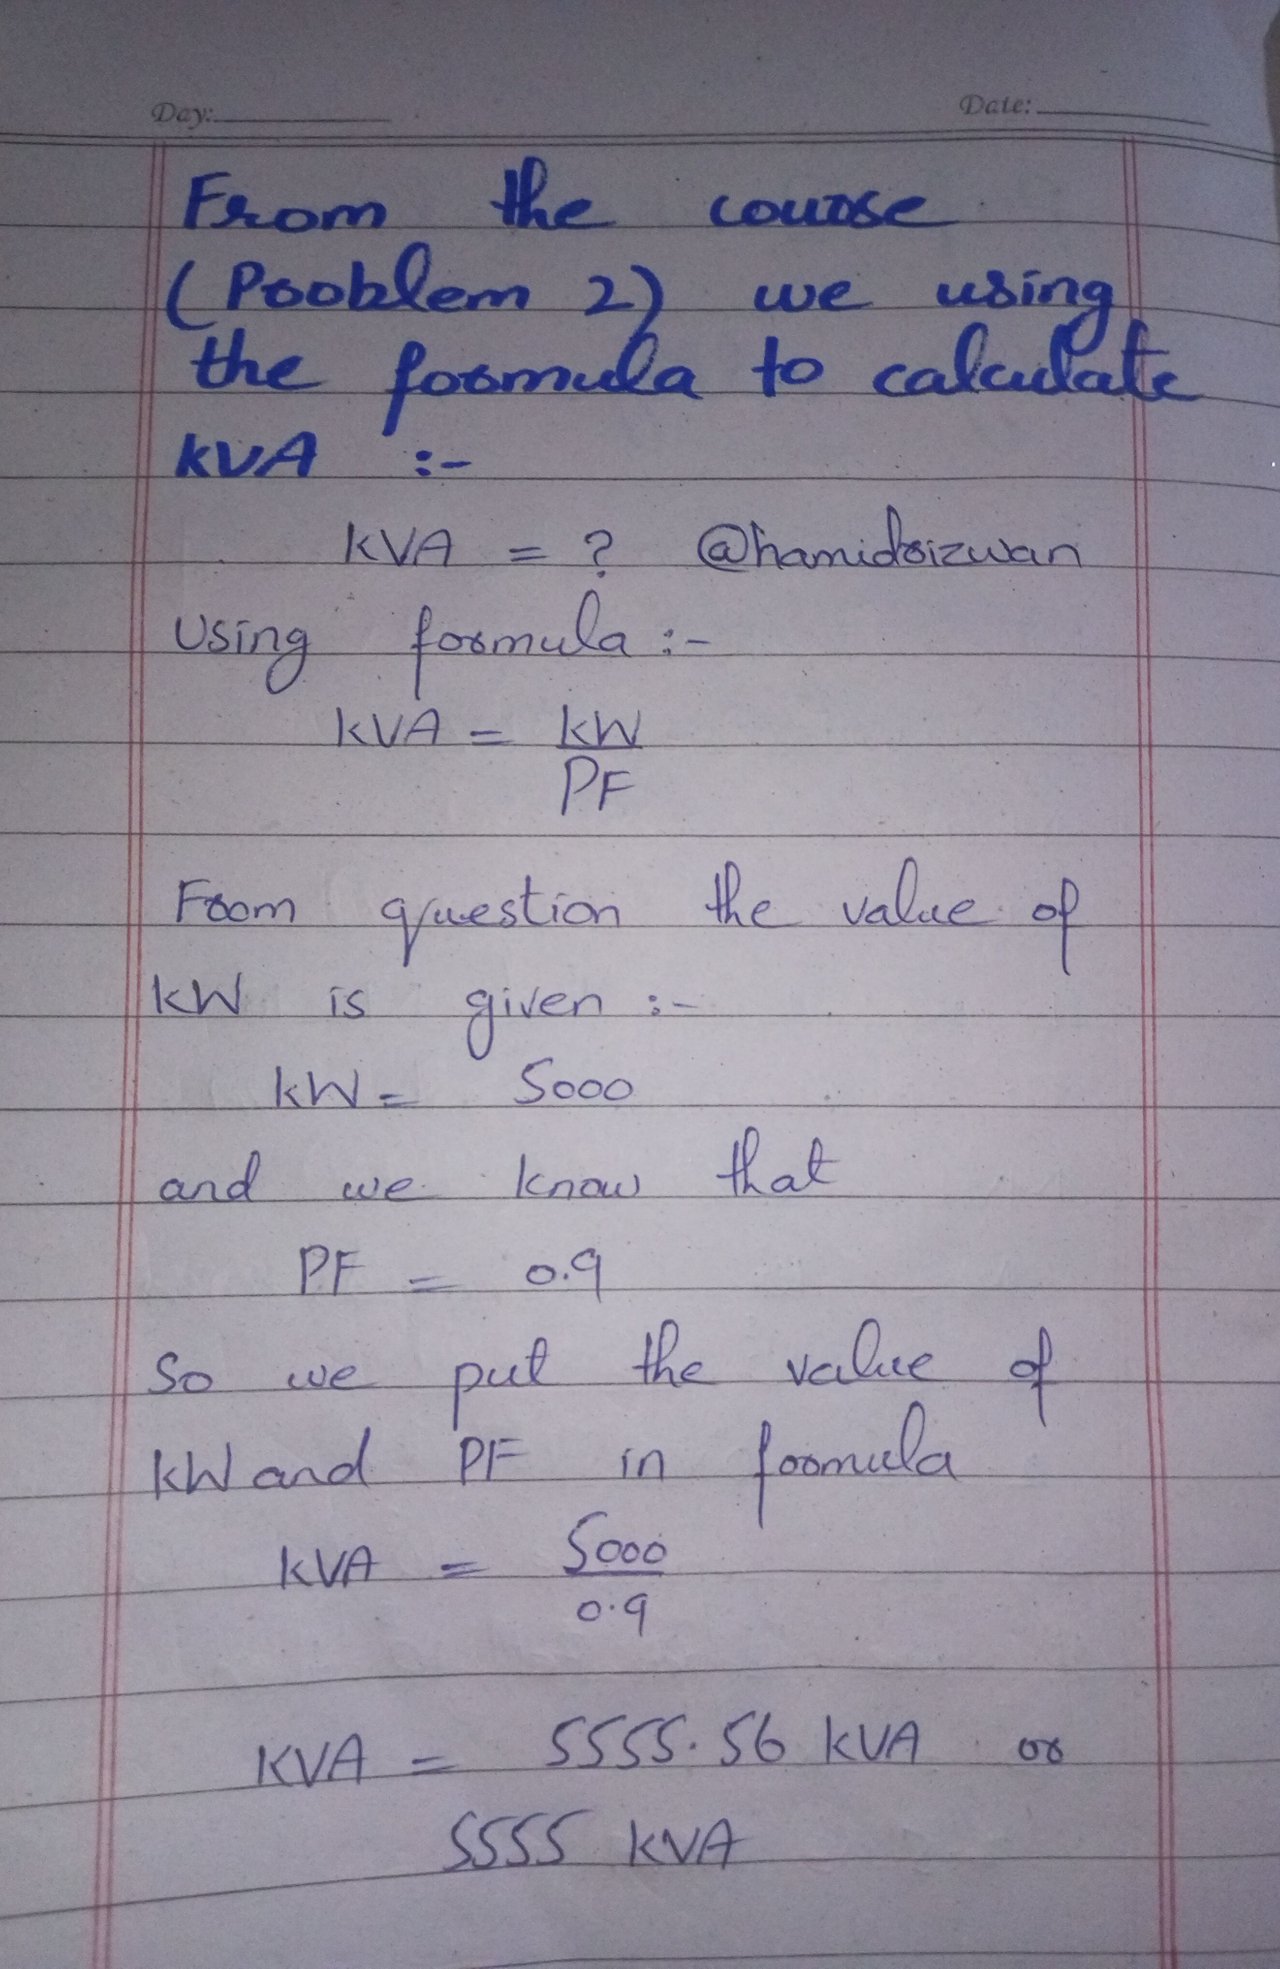 Day:
Date:
From the course
(Problem 2) we using
the formula to calculate
kVA :-
kVA = ? @hamidrizwan
Using formula :-
kVA = kW
PF
From question the value of
kW is given :-
kW = 5000
and we know that
PF = 0.9
So we put the value of
kW and PF in formula
kVA = 5000
0.9
KVA = 5555.56 kVA or
5555 kVA